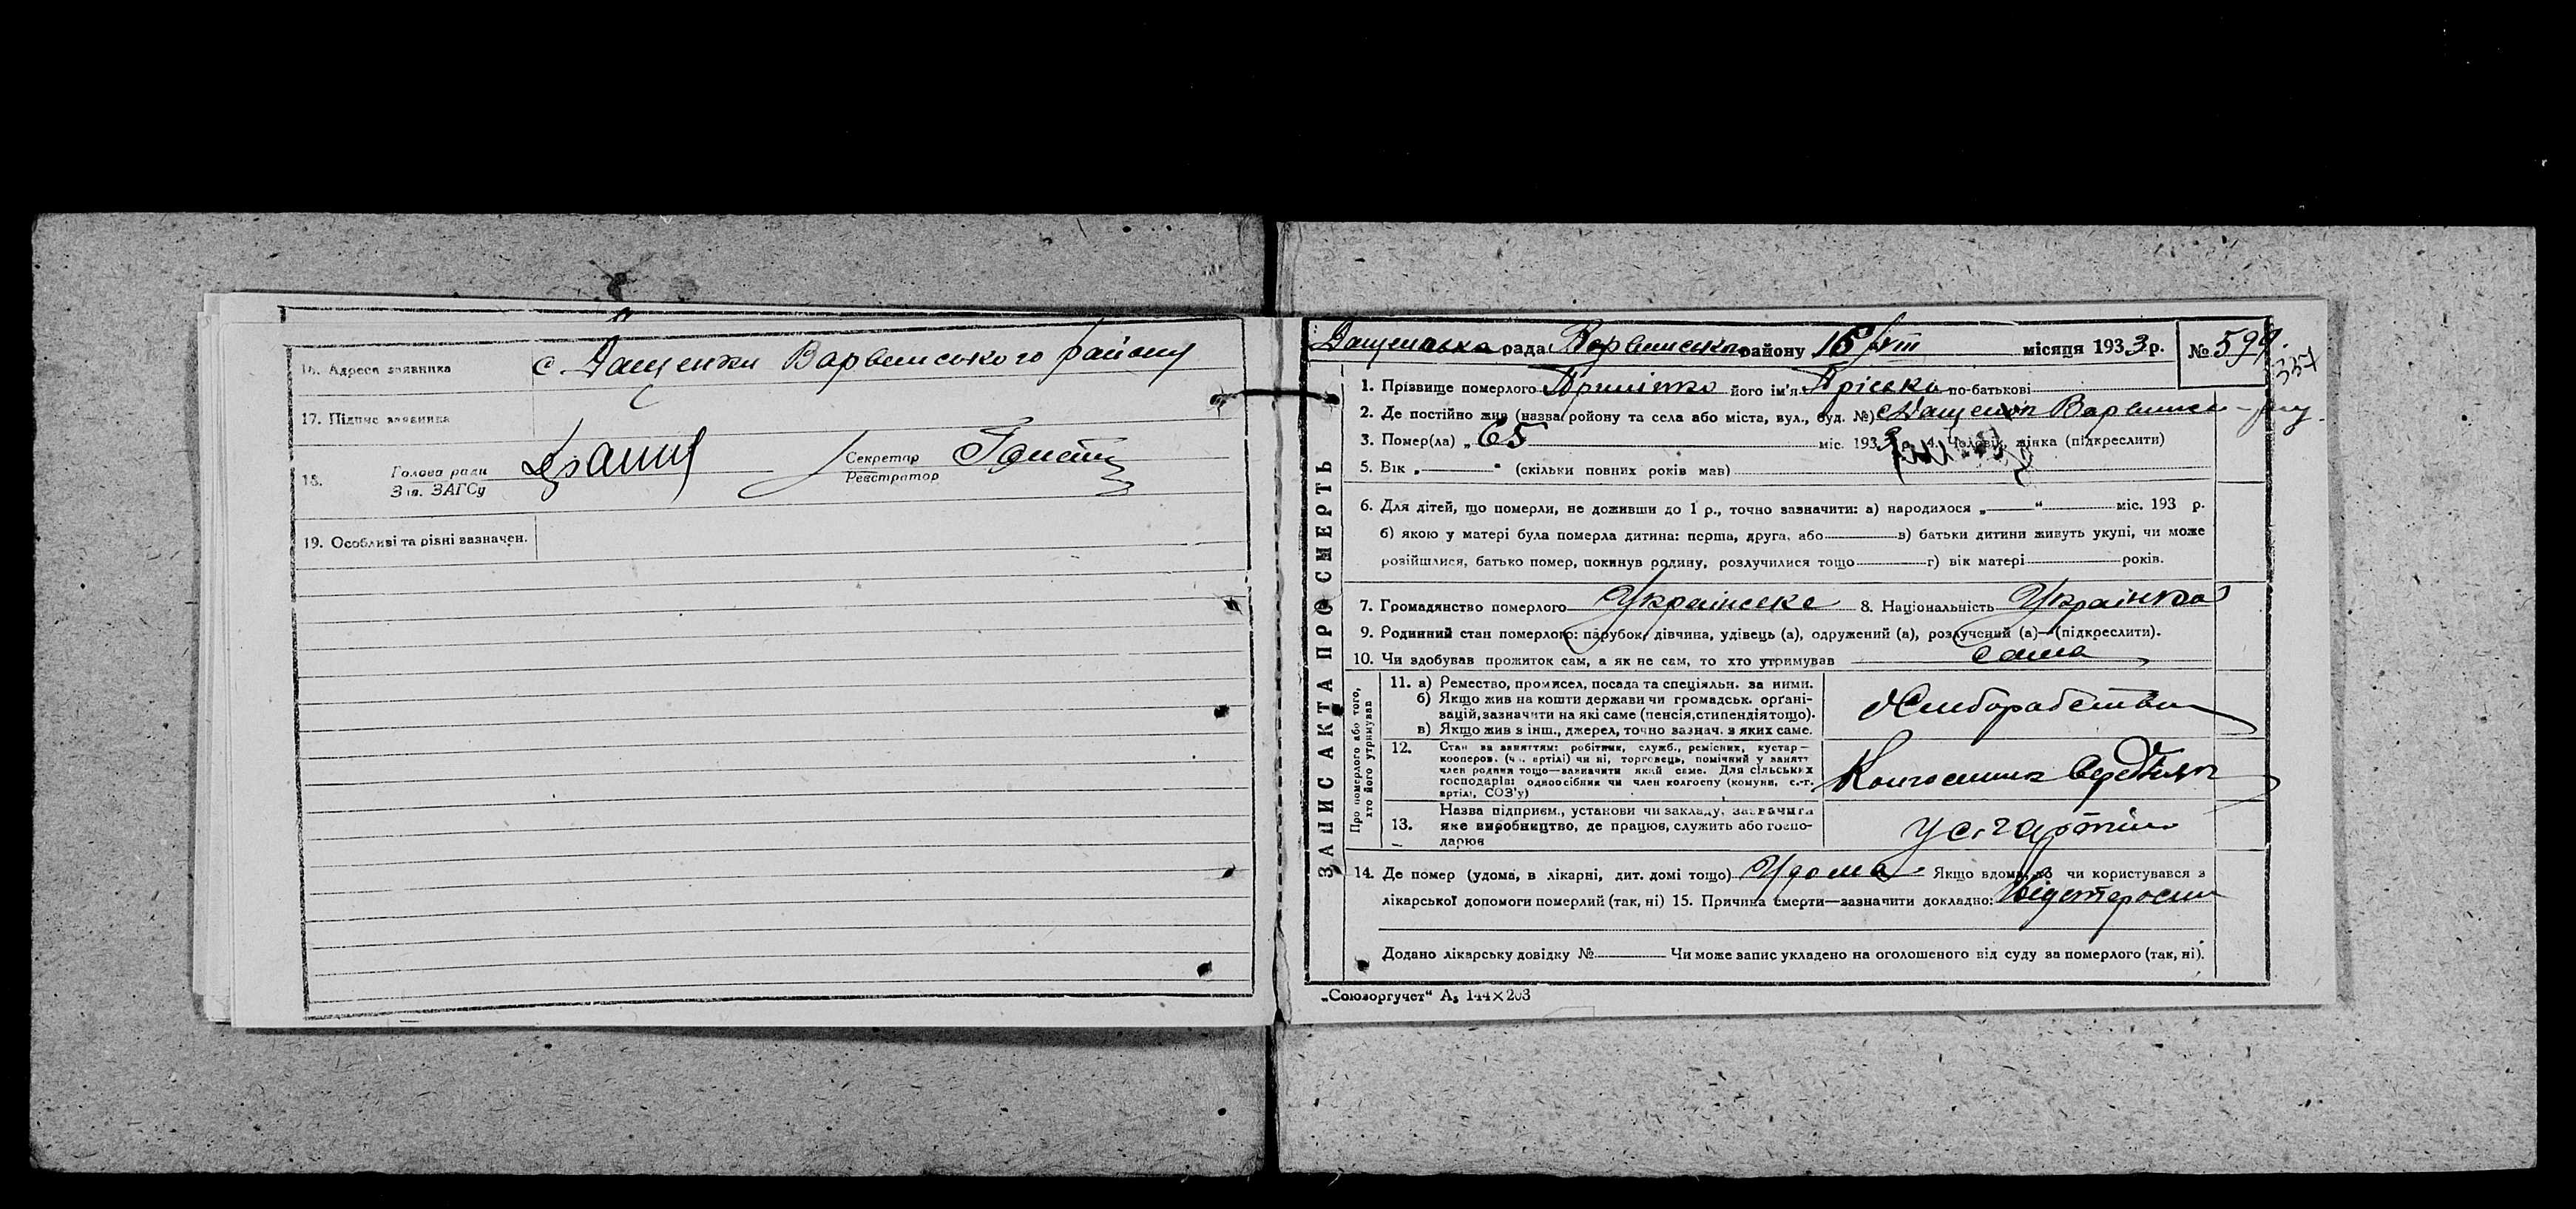 16. Адреса заявника с. Дащенки Варвинського району
17. Підпис заявника
18. Голова ради
Зав. ЗАГСу
Секретар
Реєстратор
19. Особливі та різні зазначен.
ЗАПИС АКТА ПРО СМЕРТЬ
Дащенська рада Варвинська району 15/VIII місяця 1933 р. № 599.
357
1. Прізвище померлого його ім'я Пріська по-батькові
2. Де постійно жив (назва району та села або міста, вул., буд. №) с Дащенки Варвинсь - рну
3. Помер(ла) „ 65 міс. 1933 р. 4. Чоловік, жінка (підкреслити)
5. Вік „ “ (скільки повних років мав)
6. Для дітей, що померли, не доживши до 1 р., точно зазначити: а) народилося „ “ міс. 193 р.
б) якою у матері була померла дитина: перша, друга, або в) батьки дитини живуть укупі, чи може
розійшлися, батько помер, покинув родину, розлучилися тощо г) вік матері років.
7. Громадянство померлого Українське 8. Національність Українка
9. Родинний стан померлого: парубок, дівчина, удівець (а), одружений (а), розлучений (а)—(підкреслити).
10. Чи здобував прожиток сам, а як не сам, то хто утримував сама
Про померлого або того,
хто його утримував
11. а) Ремество, промисел, посада та спеціяльн. за ними.
б) Якщо жив на кошти держави чи громадськ. органі-
зацій, зазначити на які саме (пенсія, стипендія тощо).
в) Якщо жив з інш., джерел, точно зазнач. з яких саме.
Хліборобство
12. Стан за заняттям: робітник, служб., ремісник, кустар—
кооперов. (чл. артілі) чи ні, торговець, помічний у занятт
член родини тощо—зазначити який саме. Для сільських
господарів: одноосібник чи член колгоспу (комуни, с.-г.
артілі, СОЗ'у)
Колгоспник Середняк
13. Назва підприєм., установи чи закладу, зазначити
яке виробництво, де працює, служить або госпо-
дарює
У с.г артіль
14. Де помер (удома, в лікарні, дит. домі тощо) Удома. Якщо вдома, то чи користувався з
лікарської допомоги померлий (так, ні) 15. Причина смерти—зазначити докладно:
Додано лікарську довідку № Чи може запис укладено на оголошеного від суду за померлого (так, ні).
„Союзоргучет“ А5 144×203